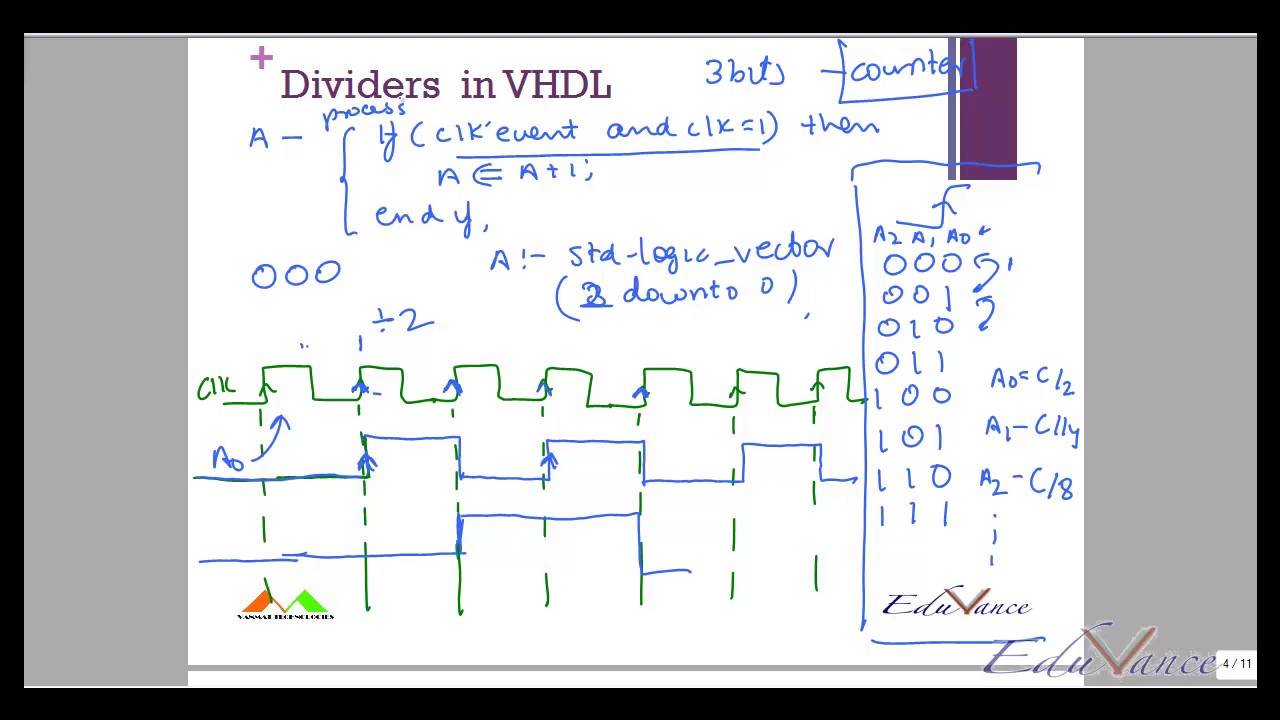 +
Dividers in VHDL
3 bits – counter
process
A – If (clk'event and clk=1) then
A <= A+1;
end if;
A :- std-logic_vector
(2 downto 0),
000
÷2
clk
A0
A2 A1 A0
000
001
010
011
100
101
110
111
A0 = C/2
A1 – C/4
A2 – C/8
VANMAT TECHNOLOGIES
EduVance
EduVance
4 / 11